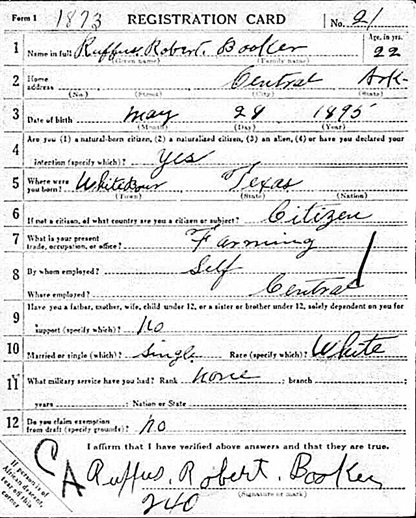 Form 1 1873 REGISTRATION CARD No. 21
1 Name in full Ruffus. Robert. Booker Age, in yrs. 22
(Given name) (Family name)
2 Home address Central Ark-
(No.) (Street) (City) (State)
3 Date of birth May 28 1895
(Month) (Day) (Year)
Are you (1) a natural-born citizen, (2) a naturalized citizen, (3) an alien, (4) or have you declared your
4 intention (specify which)? yes
5 Where were you born? Texas
(Town) (State) (Nation)
6 If not a citizen, of what country are you a citizen or subject? Citizen
7 What is your present trade, occupation, or office? Farming
8 By whom employed? Self
Where employed? Central
9 Have you a father, mother, wife, child under 12, or a sister or brother under 12, solely dependent on you for
support (specify which)? no
10 Married or single (which)? Single Race (specify which)? White
11 What military service have you had? Rank none ; branch
years ; Nation or State
12 Do you claim exemption from draft (specify grounds)? no
I affirm that I have verified above answers and that they are true.
CA Ruffus. Robert. Booker
240
(Signature or mark)
If person is of African descent, tear off this corner